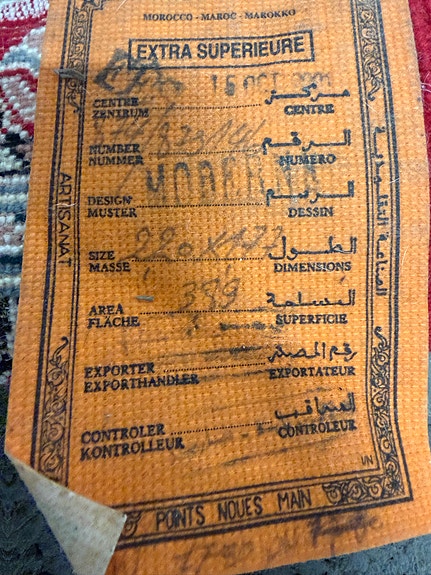 MOROCCO - MAROC - MAROKKO
EXTRA SUPERIEURE
16 OCT
CENTRE مركز
ZENTRUM CENTRE
NUMBER الرقم
NUMMER NUMERO
MODERN
DESIGN الرسم
MUSTER DESSIN
SIZE الطول
MASSE DIMENSIONS
AREA 389 المساحة
FLÄCHE SUPERFICIE
EXPORTER رقم المصدر
EXPORTHANDLER EXPORTATEUR
CONTROLER المراقب
KONTROLLEUR CONTROLEUR
ARTISANAT
الصناعة التقليدية
VN
POINTS NOUES MAIN